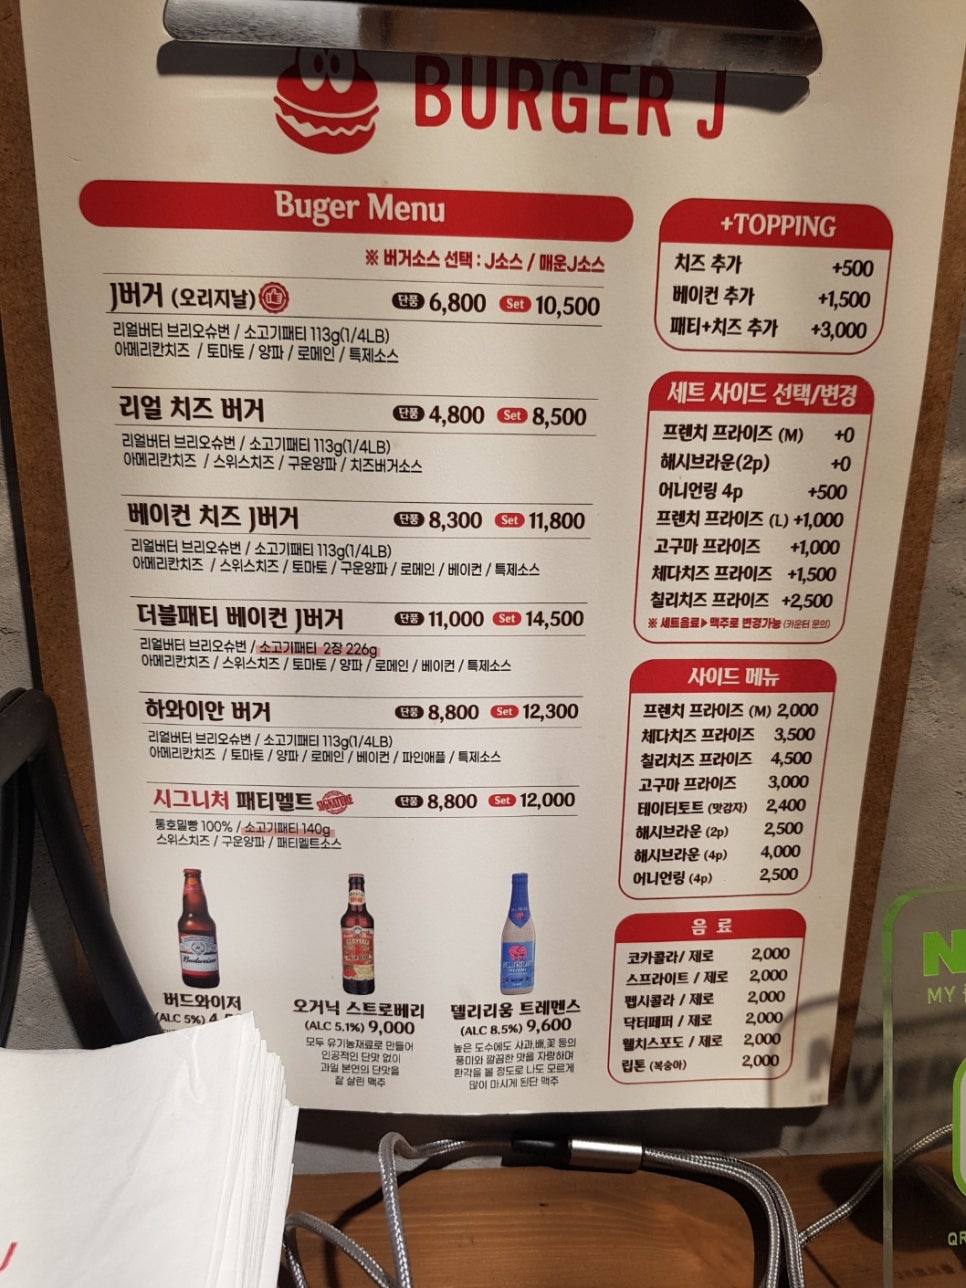 BURGER J
Buger Menu
※ 버거소스 선택 : J소스 / 매운J소스
J버거 (오리지날) 단품 6,800 Set 10,500
리얼버터 브리오슈번 / 소고기패티 113g(1/4LB)
아메리칸치즈 / 토마토 / 양파 / 로메인 / 특제소스
리얼 치즈 버거 단품 4,800 Set 8,500
리얼버터 브리오슈번 / 소고기패티 113g(1/4LB)
아메리칸치즈 / 스위스치즈 / 구운양파 / 치즈버거소스
베이컨 치즈 J버거 단품 8,300 Set 11,800
리얼버터 브리오슈번 / 소고기패티 113g(1/4LB)
아메리칸치즈 / 스위스치즈 / 토마토 / 구운양파 / 로메인 / 베이컨 / 특제소스
더블패티 베이컨 J버거 단품 11,000 Set 14,500
리얼버터 브리오슈번 / 소고기패티 2장 226g
아메리칸치즈 / 스위스치즈 / 토마토 / 양파 / 로메인 / 베이컨 / 특제소스
하와이안 버거 단품 8,800 Set 12,300
리얼버터 브리오슈번 / 소고기패티 113g(1/4LB)
아메리칸치즈 / 토마토 / 양파 / 로메인 / 베이컨 / 파인애플 / 특제소스
시그니처 패티멜트 SIGNATURE 단품 8,800 Set 12,000
통호밀빵 100% / 소고기패티 140g
스위스치즈 / 구운양파 / 패티멜트소스
Budweiser
버드와이저
(ALC 5%)
오거닉 스트로베리
(ALC 5.1%) 9,000
모두 유기농재료로 만들어
인공적인 단맛 없이
과일 본연의 단맛을
잘 살린 맥주
델리리움 트레멘스
(ALC 8.5%) 9,600
높은 도수에도 사과,배,꽃 등의
풍미와 깔끔한 맛을 자랑하며
환각을 볼 정도로 나도 모르게
많이 마시게 된단 맥주
+TOPPING
치즈 추가 +500
베이컨 추가 +1,500
패티+치즈 추가 +3,000
세트 사이드 선택/변경
프렌치 프라이즈 (M) +0
해시브라운(2p) +0
어니언링 4p +500
프렌치 프라이즈 (L) +1,000
고구마 프라이즈 +1,000
체다치즈 프라이즈 +1,500
칠리치즈 프라이즈 +2,500
※ 세트음료▶맥주로 변경가능 (카운터 문의)
사이드 메뉴
프렌치 프라이즈 (M) 2,000
체다치즈 프라이즈 3,500
칠리치즈 프라이즈 4,500
고구마 프라이즈 3,000
테이터토트 (맛감자) 2,400
해시브라운 (2p) 2,500
해시브라운 (4p) 4,000
어니언링 (4p) 2,500
음료
코카콜라/ 제로 2,000
스프라이트 / 제로 2,000
펩시콜라 / 제로 2,000
닥터페퍼 / 제로 2,000
웰치스포도 / 제로 2,000
립톤 (복숭아) 2,000
MY
QR